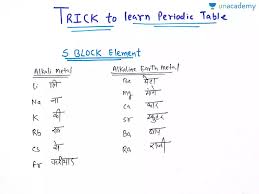 unacademy
TRICK to learn Periodic Table
S BLOCK Element
Alkali Metal
Li लि
Na ना
K की
Rb रब
Cs से
Fr फरियाद
Alkaline Earth metal
Be बेटा
Mg मांगे
Ca कार
Sr स्कूटर
Ba बाप
Ra राजी